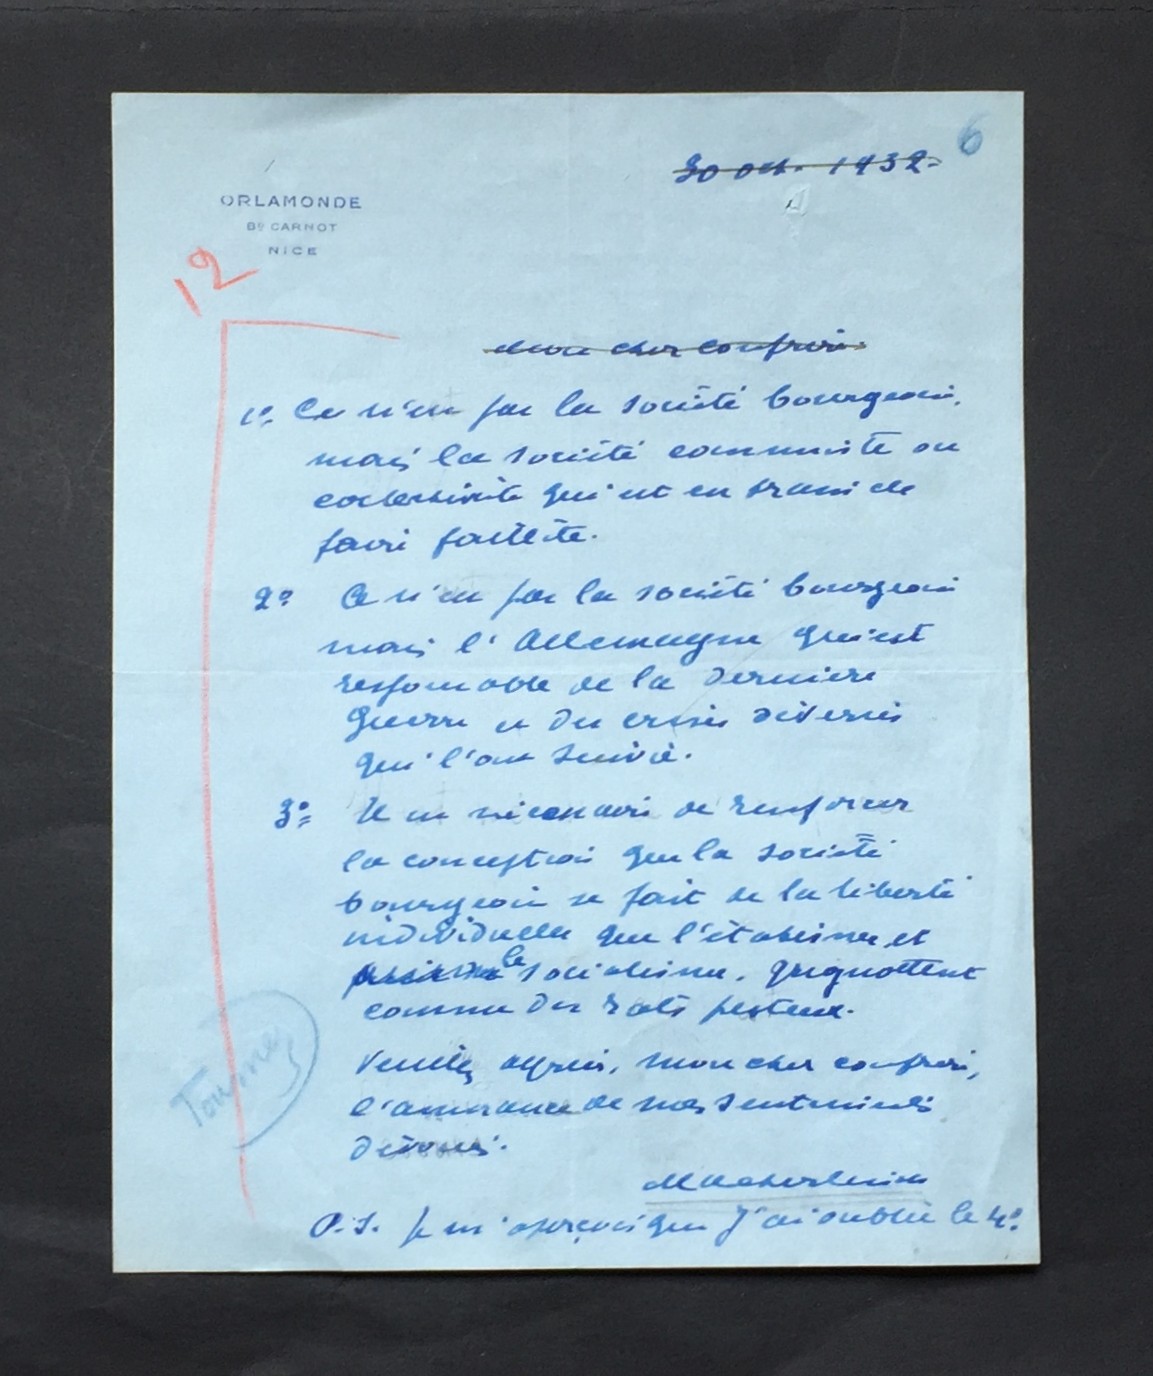 6
30 oct. 1932
ORLAMONDE
Bd CARNOT
NICE
12
Mon cher Confrère
1º Ce n'est pas la société bourgeoise,
mais la société communiste ou
collectiviste qui est en train de
faire faillite.
2º Ce n'est pas la société bourgeoise
mais l'Allemagne qui est
responsable de la dernière
guerre et des crises diverses
qui l'ont suivie.
3º Il est nécessaire de renforcer
la conception que la société
bourgeoise se fait de la liberté
individuelle que l'étatisme et
le socialisme, grignottent
comme des rats pesteux.
Veuillez agréer, mon cher confrère,
l'assurance de mes sentiments
dévoués.
Maeterlinck
P.S. Je m'aperçois que j'ai oublié le 4º.
Tournez